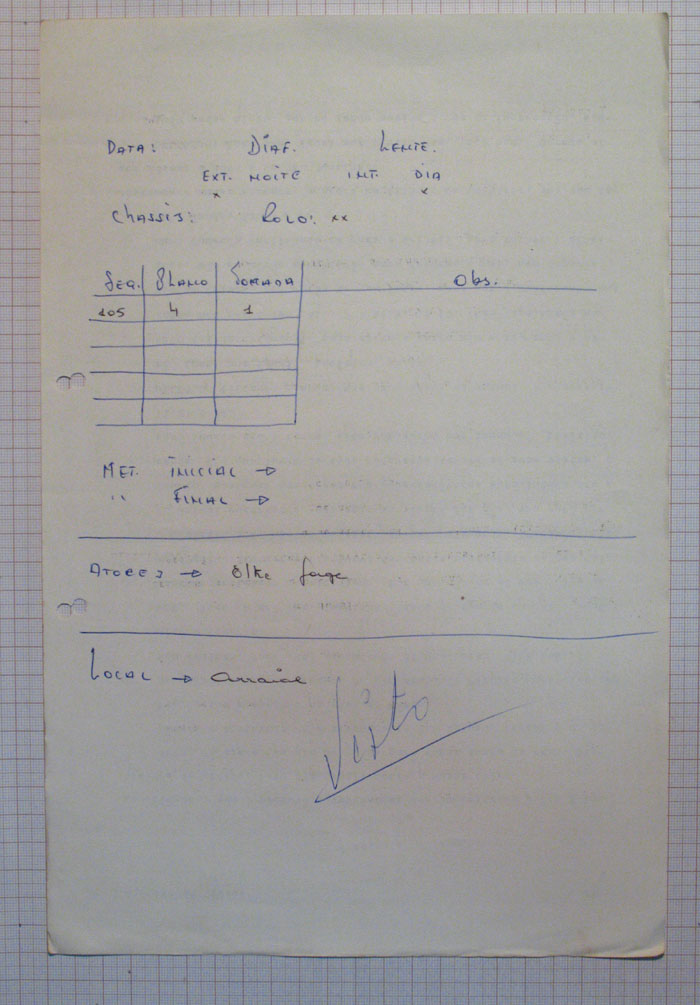 DATA: DIAF. LENTE.
EXT. NOITE INT. DIA
x x
Chassis: Rolo: xx
SEQ. PLANO TOMADA Obs.
105 4 1
MET. INICIAL →
" FINAL →
ATORES → Jorge
LOCAL →
Visto